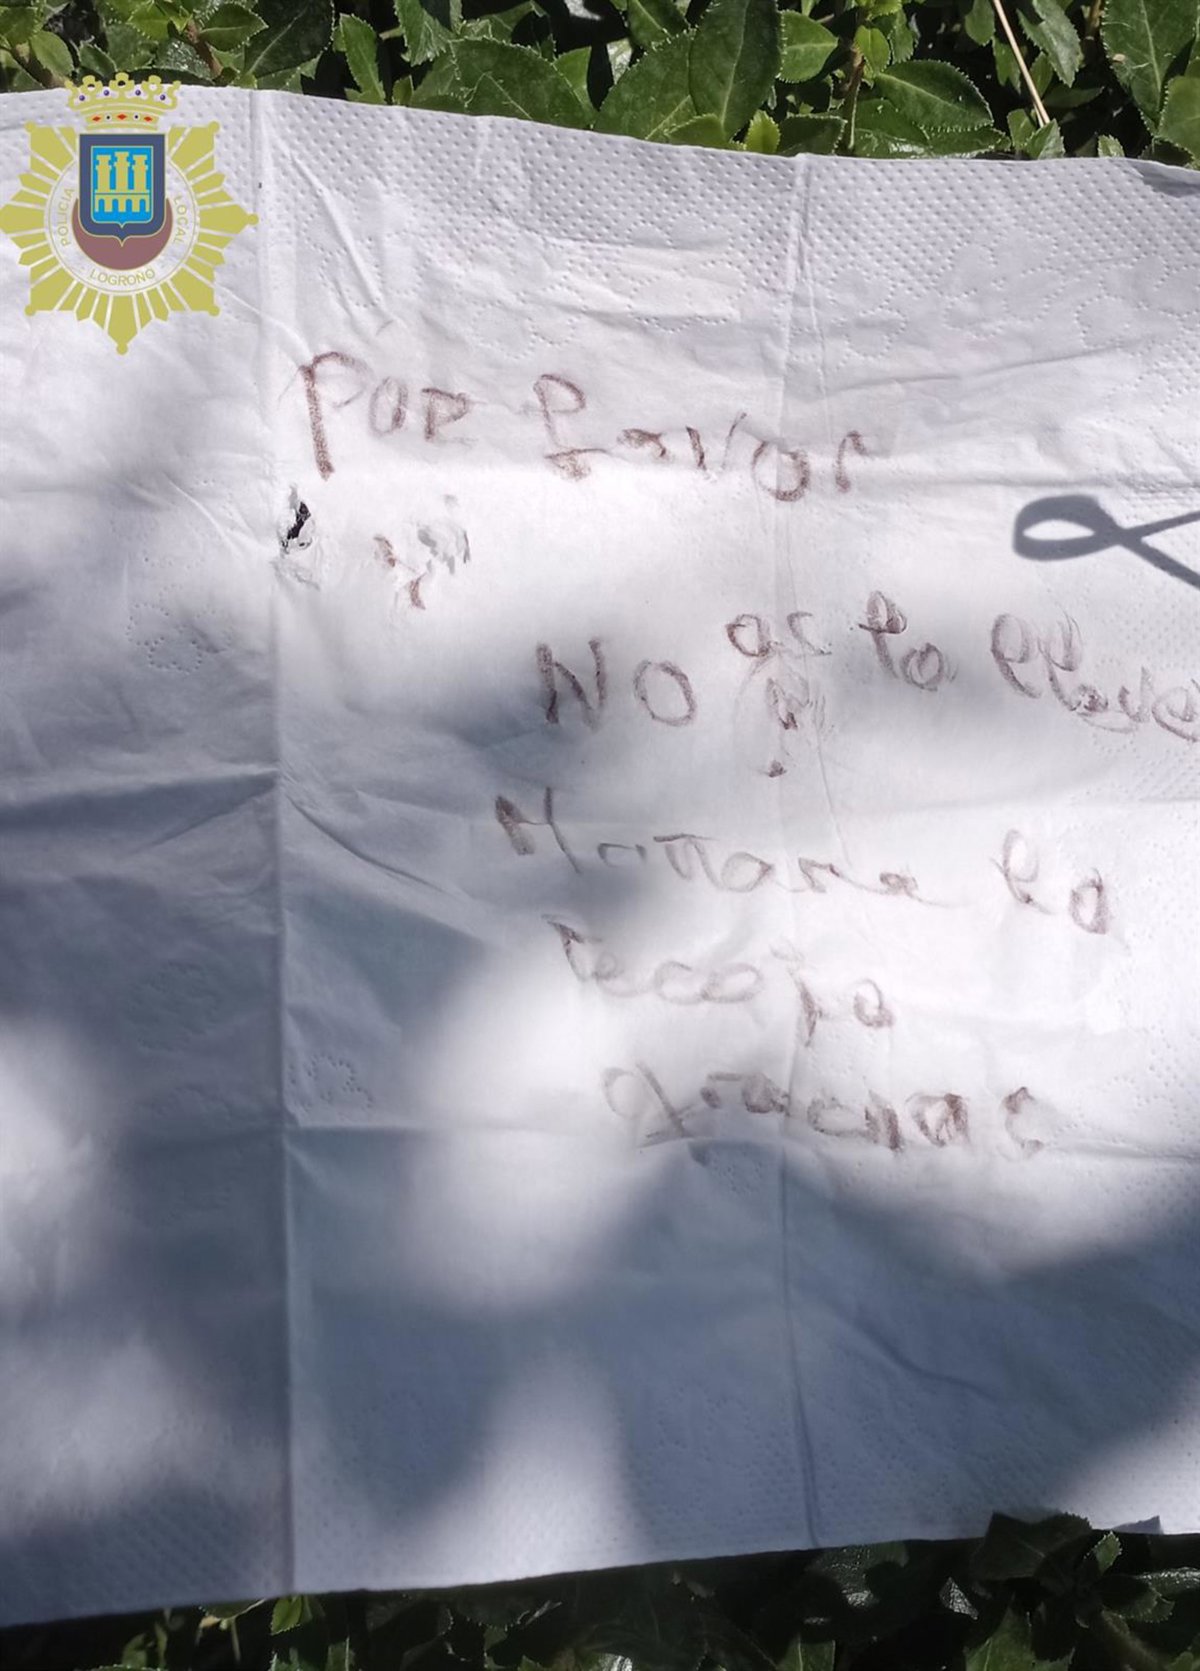 POLICIA LOCAL
LOGROÑO
POR favor
NO os lo lleve
Mañana lo
recojo
gracias